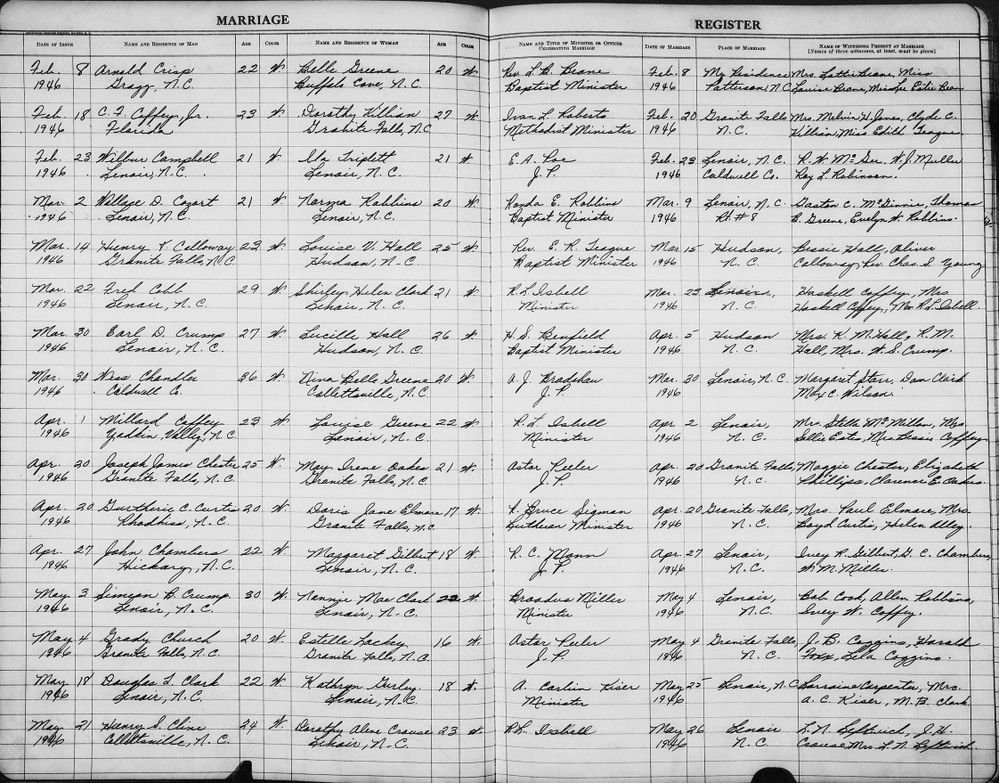 MARRIAGE REGISTER
DATE OF ISSUE NAME AND RESIDENCE OF MAN AGE COLOR NAME AND RESIDENCE OF WOMAN AGE COLOR NAME AND TITLE OF MINISTER OR OFFICER CELEBRATING MARRIAGE DATE OF MARRIAGE PLACE OF MARRIAGE NAME OF WITNESSES PRESENT AT MARRIAGE
Feb. 8 Arnold Crisp 22 W. Belle Greene 20 W. Rev. L. B. Beane Feb. 8 My Residence Mrs. Lottie Beane, Miss
1946 Gragg, N.C. Buffalo Cove, N.C. Baptist Minister 1946 Patterson, N.C. Louise Beane, Miss
Feb. 18 C. F. Coffey, Jr. 23 W. Dorothy Killian 27 W. Ivan L. Roberts Feb. 20 Granite Falls Mrs. Melvin H. Jones, Clyde C.
1946 Florida Granite Falls, N.C. Methodist Minister 1946 N.C. Killian, Miss Edith Teague
Feb. 23 Wilbur Campbell 21 W. Ila Triplett 21 W. E. A. Poe Feb. 23 Lenoir, N.C. R. W. McGee, W. J. Miller
1946 Lenoir, N.C. Lenoir, N.C. J.P. 1946 Caldwell Co. Roy L. Robinson.
Mar. 2 Wallace D. Cozart 21 W. Norma Robbins 20 W. E. Robbins Mar. 9 Lenoir, N.C. Gaston C. McGinnis, Thomas
1946 Lenoir, N.C. Lenoir, N.C. Baptist Minister 1946 Rt. #8 E. Greene, Evelyn W. Robbins.
Mar. 14 Henry P. Calloway 23 W. Louise V. Hall 25 W. Rev. E. R. Teague Mar. 15 Hudson, Bessie Hall, Oliver
1946 Granite Falls, N.C. Hudson, N.C. Baptist Minister 1946 N.C. Calloway, Rev. Chas. S. Young
Mar. 22 Fred Cobb 29 W. Shirley Helen Clark 21 W. R. L. Isbell Mar. 23 Lenoir, Haskell Coffey, Mrs.
1946 Lenoir, N.C. Lenoir, N.C. Minister 1946 N.C. Haskell Coffey, Mrs. R. L. Isbell.
Mar. 30 Earl D. Crump 27 W. Lucille Hall 26 W. H. S. Benfield Apr. 5 Hudson Mrs. K. M. Hall, R. M.
1946 Lenoir, N.C. Hudson, N.C. Baptist Minister 1946 N.C. Hall, Mrs. W. S. Crump.
Mar. 30 Wess Chandler 26 W. Nina Belle Greene 20 W. A. J. Bradshaw Mar. 30 Lenoir, N.C. Margaret Starr, Dan Clark
1946 Caldwell Co. Collettsville, N.C. J.P. 1946 Max C. Wilson.
Apr. 1 Millard Coffey 23 W. Louise Greene 22 W. R. L. Isbell Apr. 2 Lenoir, Mrs. Stella McMillan, Mrs.
1946 Yadkin Valley, N.C. Lenoir, N.C. Minister 1946 N.C. Estes, Mrs. Bessie Coffey.
Apr. 20 Joseph James Chester 25 W. May Irene Oakes 21 W. Astor Peeler Apr. 20 Granite Falls, Maggie Chester, Elizabeth
1946 Granite Falls, N.C. Granite Falls, N.C. J.P. 1946 N.C. Phillips, Clarence E. Oakes.
Apr. 20 C. Curtis 20 W. Doris Jane Elmore 17 W. R. Bruce Sigman Apr. 20 Granite Falls, Mrs. Paul Elmore, Mrs.
1946 Rhodhiss, N.C. Granite Falls, N.C. Lutheran Minister 1946 N.C. Boyd Curtis, Helen Alley.
Apr. 27 John Chambers 22 W. Margaret Gilbert 18 W. R. C. Mann Apr. 27 Lenoir, Ivey R. Gilbert, G. C. Chambers,
1946 Hickory, N.C. Lenoir, N.C. J.P. 1946 N.C. W. M. Miller.
May 3 Simeon B. Crump 30 W. Nannie Mae Clark 22 W. Broadus Miller May 4 Lenoir, Bob Cook, Allen Robbins,
1946 Lenoir, N.C. Lenoir, N.C. Minister 1946 N.C. Ivey W. Coffey.
May 4 Grady Church 20 W. Estelle Lackey 16 W. Astor Peeler May 4 Granite Falls, J. B. Coggins, Harold
1946 Granite Falls, N.C. Granite Falls, N.C. J.P. 1946 N.C. Fox, Lela Coggins.
May 18 Douglas L. Clark 22 W. Kathryn Gurley 18 W. A. Carlin Kiser May 25 Lenoir, N.C. Lorraine Carpenter, Mrs.
1946 Lenoir, N.C. Lenoir, N.C. Minister 1946 A. C. Kiser, M. B. Clark.
May 21 Henry S. Cline 24 W. Dorothy Alene Crouse 23 W. R. L. Isbell May 26 Lenoir L. N. Leftwich, J. H.
1946 Collettsville, N.C. Lenoir, N.C. 1946 N.C. Crouse, Mrs. L. N. Leftwich